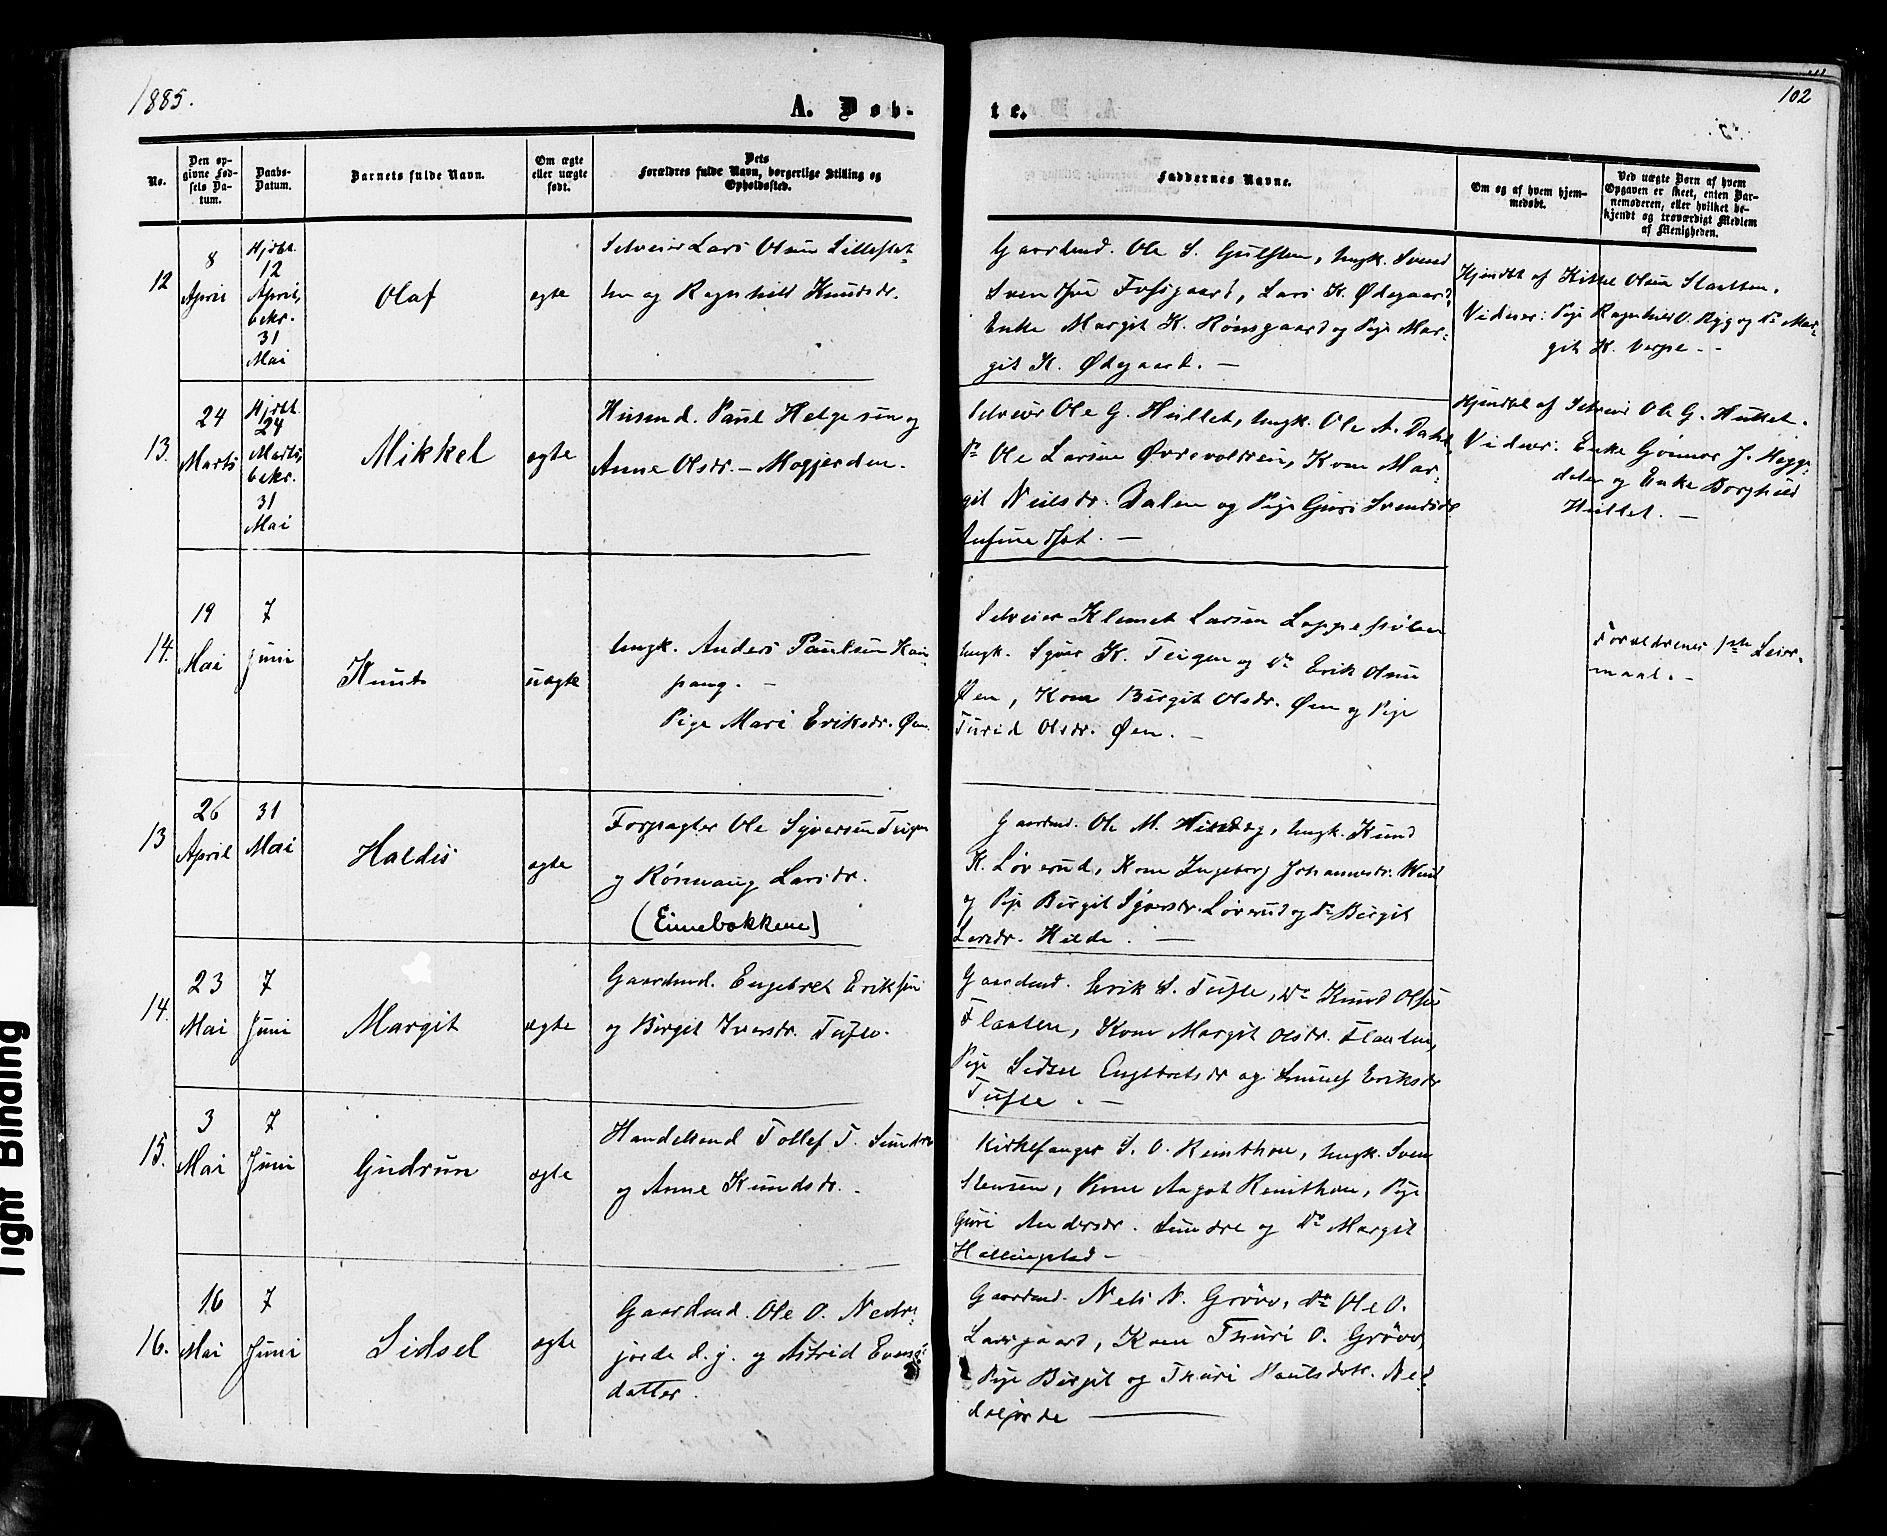 1885.
A. Døb-
te.
102
No.
Den op-
givne Fød-
sels Da-
tum.
Daabs-
Datum.
Barnets fulde Navn.
Om ægte
eller uægte
født.
Dets
Forældres fulde Navn, borgerlige Stilling og
Opholdssted.
Faddernes Navne.
Om og af hvem hjem-
medøbt.
Ved uægte Børn af hvem
Opgaven er skeet, enten Bar-
nemoderen, eller hvilket be-
kjendt og troværdigt Medlem
af Menigheden.
12
8
April
Hjdbt.
12
April,
bekr.
31
Mai
Olaf
ægte
Selveier Lars Olsen
og Ragnhild Knudsdr.
Gaardmd. Ole S. Gulsten, Ungk. Svend
Svendsen Fossgaard, Lars K. Ødegaard,
Enke Margit K. Rønsgaard og Pige Mar-
git K. Ødegaard. —
Hjmdbt af Kittel Olsen Slaatten.
Vidner: Pige Ragnhild O. Ryg og Do Mar-
git K. Verpe. —
13.
24
Marts
Hjdbt.
24
Marts,
bekr.
31
Mai
Mikkel
ægte
Husmd. Paul Helgesen og
Anne Olsdr. — Mogjerden.
Selveier Ole G. Hullet, Ungk. Ole A. Dahl,
Do Ole Larsen Øvrevoldsen, Kone Mar-
git Neilsdr. Dalen og Pige Guri Svendsdr
Hjmdbt af Selveier Ole G. Hullet.
Vidner: Enke Gunvor J. Hegg-
og Enke Borghild
Hullet. —
14.
19
Mai
7
Juni
Knut
uægte
Ungk. Anders Paulsen Kam-
pang. —
Pige Mari Eriksdr. Øen.
Selveier Klemet Larsen
Ungk. Syver K. Teigen og Do Erik Olsen
Øen, Kone Birgit Olsdr. Øen og Pige
Turid Olsdr. Øen. —
Forældrenes 1ste Leier-
maal. —
13
26
April
31
Mai
Haldis
ægte
Forpagter Ole Syversen Teigen
og Rønnaug Larsdr.
(Einebakkene)
Gaardmd. Ole M. Ungk. Knud
K. Løverud, Kone Ingeborg Johannesdr.
og Pige Birgit Syversdr. Løverud og Do Birgit
Larsdr. Hilde. —
14.
23
Mai
7
Juni
Margit
ægte
Gaardmd. Engebret Eriksen
og Birgit Iversdr. Tufte.
Gaardmd. Erik S. Tufte, Do Knud Olsen
Flaaten, Kone Margit Olsdr. Flaaten,
Pige Sidsel Engebretsdr og Eriksdr
Tufte. —
15.
3
Mai
7
Juni
Gudrun
ægte
Handelsmd Tollef T. Sundre
og Anne Knudsdr. —
Kirkesanger S. O. Reinthon, Ungk. Sven
Svensen, Kone Aagot Reinthon, Pige
Guri Andersdr. Sundre og Do Margit
Hallingstad —
16.
16
Mai
7
Juni
Sidsel
ægte
Gaardmd. Ole O. Nedre-
jorde d. y. og Astrid Evens-
datter.
Gaardmd. Nels N. Grøvo, Do Ole O.
Larsgaard, Kone Thuri O. Grøvo,
Pige Birgit og Thuri Ned-
Tight Binding